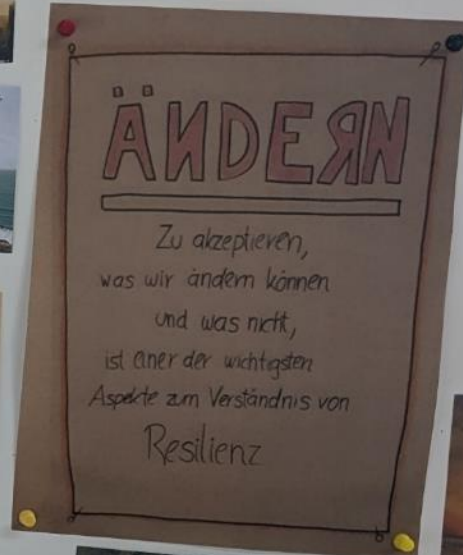 ÄNDERN
Zu akzeptieren,
was wir ändern können
und was nicht,
ist einer der wichtigsten
Aspekte zum Verständnis von
Resilienz